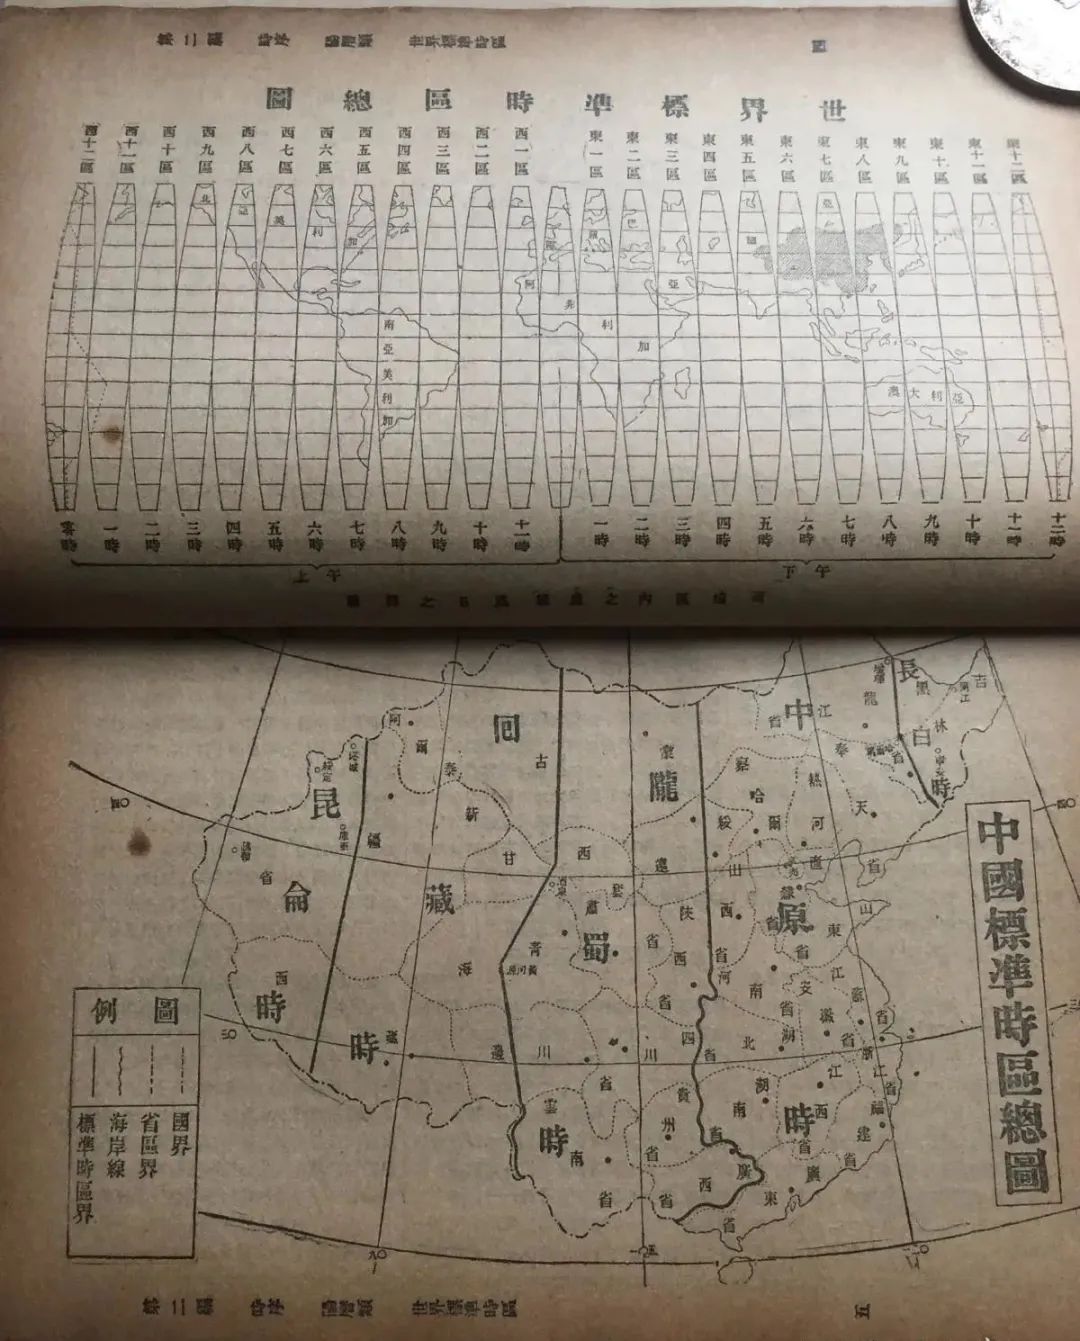 第二編 時序 陽曆類 世界標準時區
四
世界標準時區總圖
西十二區
西十一區
西十區
西九區
西八區
西七區
西六區
西五區
西四區
西三區
西二區
西一區
東一區
東二區
東三區
東四區
東五區
東六區
東七區
東八區
東九區
東十區
東十一區
東十二區
北亞美利加
南亞美利加
歐羅巴
亞細亞
阿非利加
澳大利亞
零時
一時
二時
三時
四時
五時
六時
七時
八時
九時
十時
十一時
一時
二時
三時
四時
五時
六時
七時
八時
九時
十時
十一時
十二時
上午
下午
中國標準時區總圖
長白時
中原時
隴蜀時
回藏時
昆侖時
吉林省
黑龍江省
奉天省
熱河
察哈爾
綏遠
蒙古
阿爾泰
新疆省
甘肅省
青海
西藏
川邊
直隸省
山東省
山西省
陝西省
河南省
江蘇省
安徽省
浙江省
江西省
湖北省
湖南省
四川省
貴州省
雲南省
福建省
廣東省
廣西省
黃河原
圖例
國界
省區界
海岸線
標準時區界
四〇
四〇
三〇
九〇
第二編 時序 陽曆類 世界標準時區
五